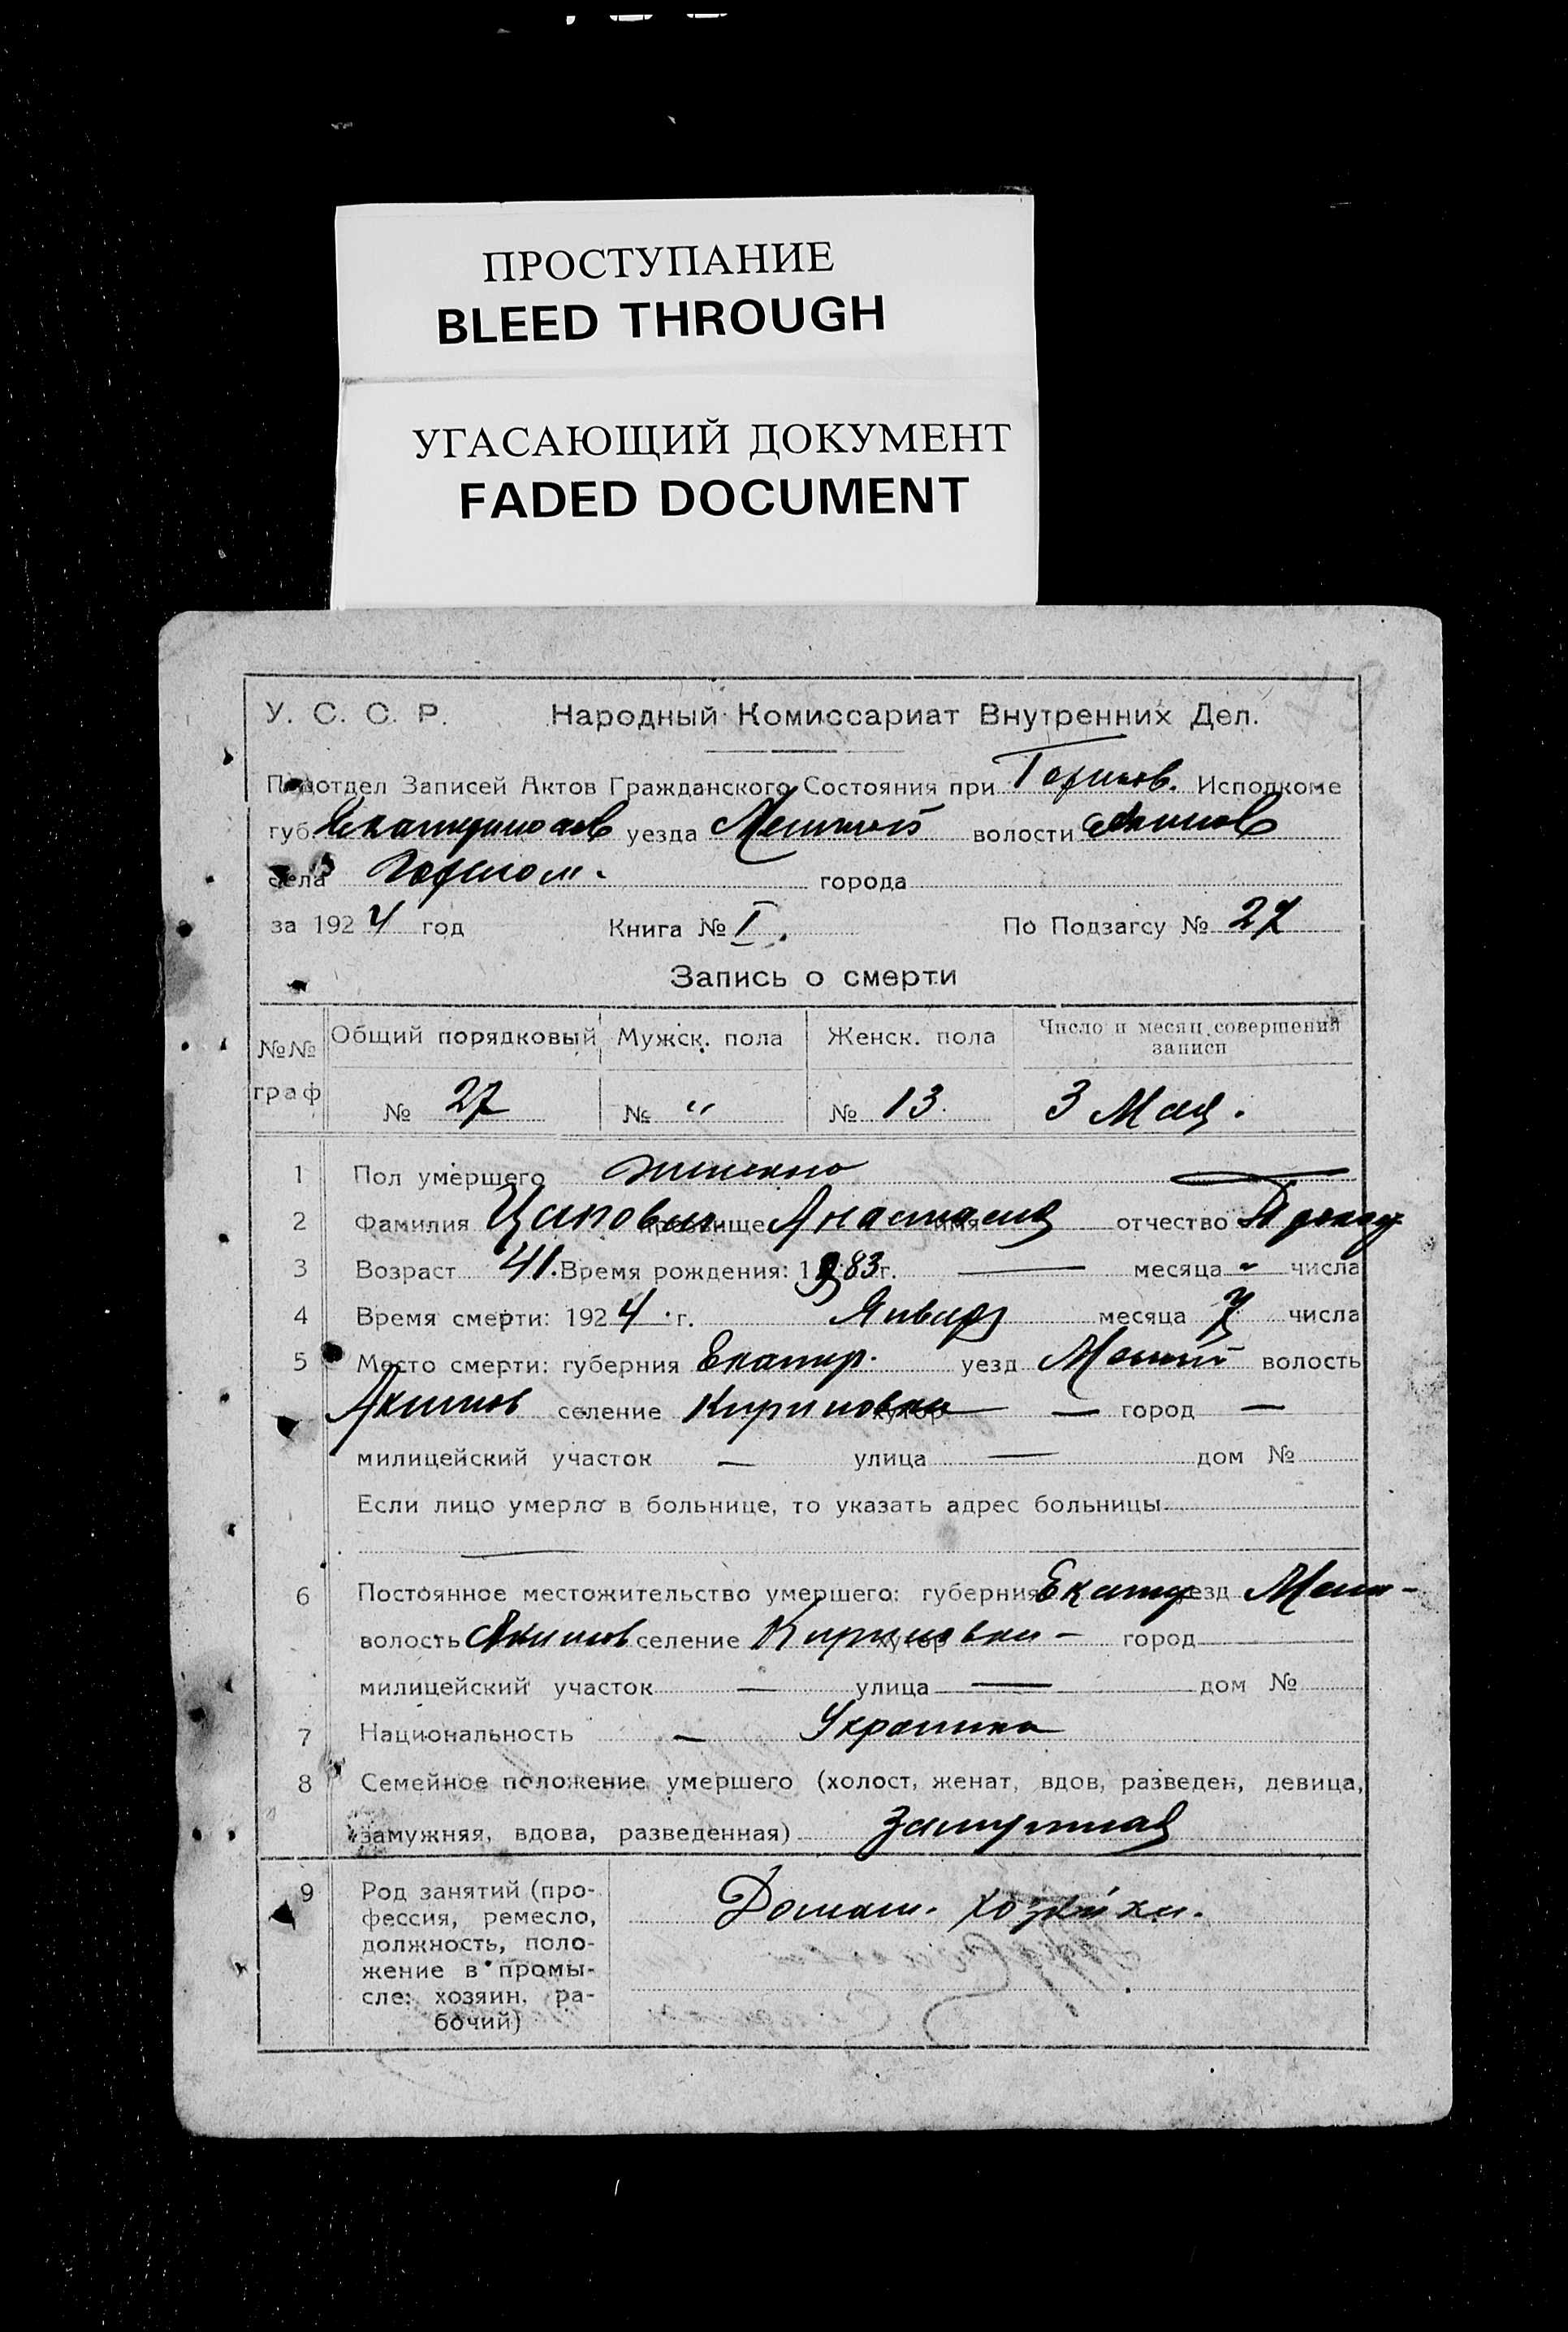 ПРОСТУПАНИЕ
BLEED THROUGH
УГАСАЮЩИЙ ДОКУМЕНТ
FADED DOCUMENT
У. С. С. Р. Народный Комиссариат Внутренних Дел.
Подотдел Записей Актов Гражданского Состояния при Исполкоме
губ. уезда волости
села города
за 1924 год Книга № I. По Подзагсу № 27
Запись о смерти
№№ граф Общий порядковый Мужск. пола Женск. пола Число и месяц совершений записи
№ 27 № " № 13. 3 Мая.
1 Пол умершего
2 Фамилия прозвище Анастасия имя отчество
3 Возраст 41. Время рождения: 1883 г. — месяца - числа
4 Время смерти: 1924 г. Января месяца 7 числа
5 Место смерти: губерния Екатер. уезд волость
Акимов селение Кириловка хутор — город —
милицейский участок — улица — дом №
Если лицо умерло в больнице, то указать адрес больницы
—
6 Постоянное местожительство умершего: губерния Екатер уезд
волость Акимов селение Кириловка хутор — город
милицейский участок — улица — дом №
7 Национальность — Украинка
8 Семейное положение умершего (холост, женат, вдов, разведен, девица,
замужняя, вдова, разведенная) Замужняя
9 Род занятий (про-
фессия, ремесло,
должность, поло-
жение в промы-
сле: хозяин, ра-
бочий)
Домаш. хозяйка.